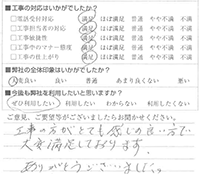 ■工事の対応はいかがでしたか?
□電話受付対応 満足 ほぼ満足 普通 やや不満 不満
□工事担当者の対応 満足 ほぼ満足 普通 やや不満 不満
□工事敏捷性 満足 ほぼ満足 普通 やや不満 不満
□工事中のマナー態度 満足 ほぼ満足 普通 やや不満 不満
□工事の仕上がり 満足 ほぼ満足 普通 やや不満 不満
■弊社の全体印象はいかがでしたか?
大変良い 良い 普通 あまり良くない 悪い
■今後も弊社を利用したいと思いますか?
ぜひ利用したい 利用したい わからない 利用したくない
ご意見、ご要望等がございましたらお聞かせください。
工事の方がとても感じの良い方で
大変満足しております。
ありがとうございました。